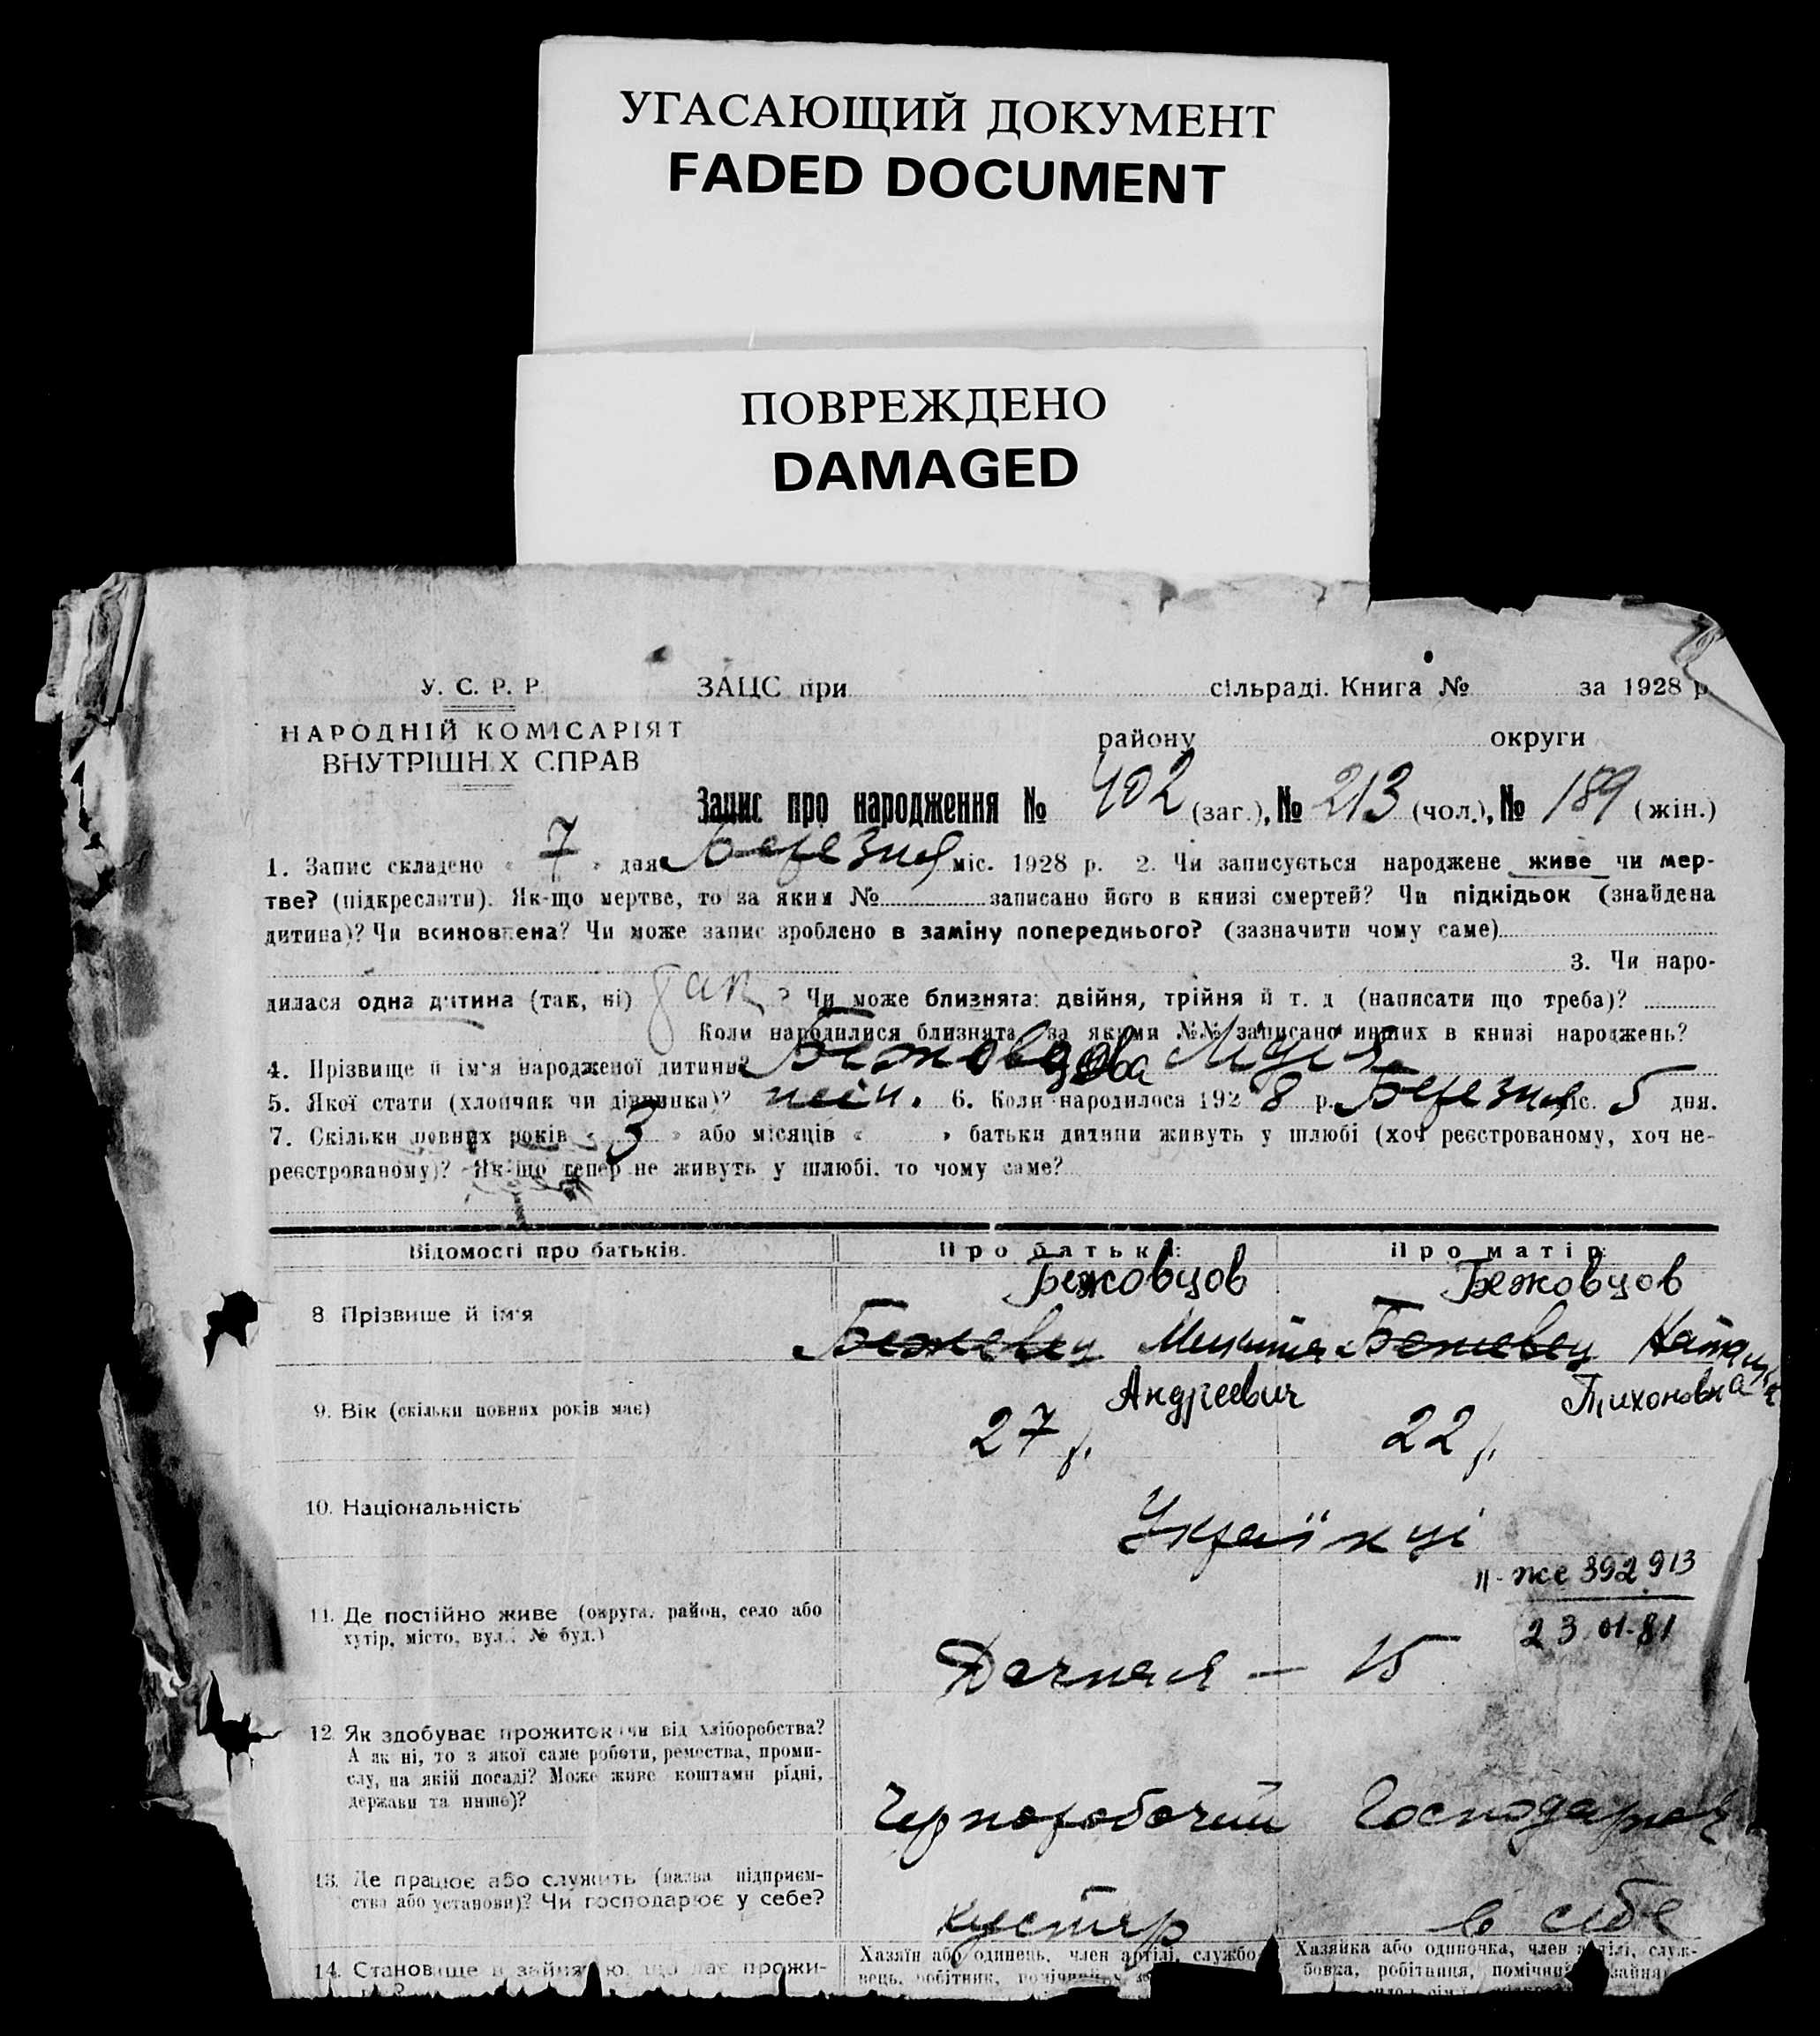 УГАСАЮЩИЙ ДОКУМЕНТ
FADED DOCUMENT
ПОВРЕЖДЕНО
DAMAGED
У. С. Р. Р.
НАРОДНІЙ КОМІСАРІЯТ
ВНУТРІШНІХ СПРАВ
ЗАЦС при сільраді. Книга № за 1928 р.
району округи
Запис про народження № 402 (заг.), № 213 (чол.), № 189 (жін.)
1. Запис складено « 7 » дня Березня міс. 1928 р. 2. Чи записується народжене живе чи мер-
тве? (підкреслити). Як-що мертве, то за яким № записано його в книзі смертей? Чи підкідьок (знайдена
дитина)? Чи всиновлена? Чи може запис зроблено в заміну попереднього? (зазначити чому саме)
3. Чи наро-
дилася одна дитина (так, ні) так ? Чи може близнята: двійня, трійня й т. д (написати що треба)?
Коли народилися близнята, за якими №№ записано инших в книзі народжень?
4. Прізвище й ім'я народженої дитини? Бежовцова Лідія
5. Якої стати (хлопчик чи дівчинка)? жін. 6. Коли народилося 1928 р. Березня міс. 5 дня.
7. Скільки повних років « 3 » або місяців « » батьки дитини живуть у шлюбі (хоч реєстрованому, хоч не-
реєстрованому)? Як-що тепер не живуть у шлюбі, то чому саме?
Відомості про батьків. Про батька: Про матір:
Бежовцов Бежовцов
8 Прізвище й ім'я Бежевец Микита Бежевец Наталія
Андреевич Тихоновна
9. Вік (скільки повних років має) 27 р. 22 р.
10. Національність Українці
II-же 392913
23.01.81
11. Де постійно живе (округа, район, село або
хутір, місто, вул., № буд.)
Дачная — 15
12. Як здобуває прожиток (чи від хліборобства?
А як ні, то з якої саме роботи, ремества, проми-
слу, на якій посаді? Може живе коштами рідні,
держави та инше)?
Чернорабочий Господарюч
13. Де працює або служить (назва підприєм-
ства або установи)? Чи господарює у себе?
кустар в себе
14. Становище в занятю, що дає прожи-
Хазяїн або одинець, член артілі, службо-
вець, робітник, помічний у
Хазяйка або одиночка, член артілі, служ-
бовка, робітниця, помічниця